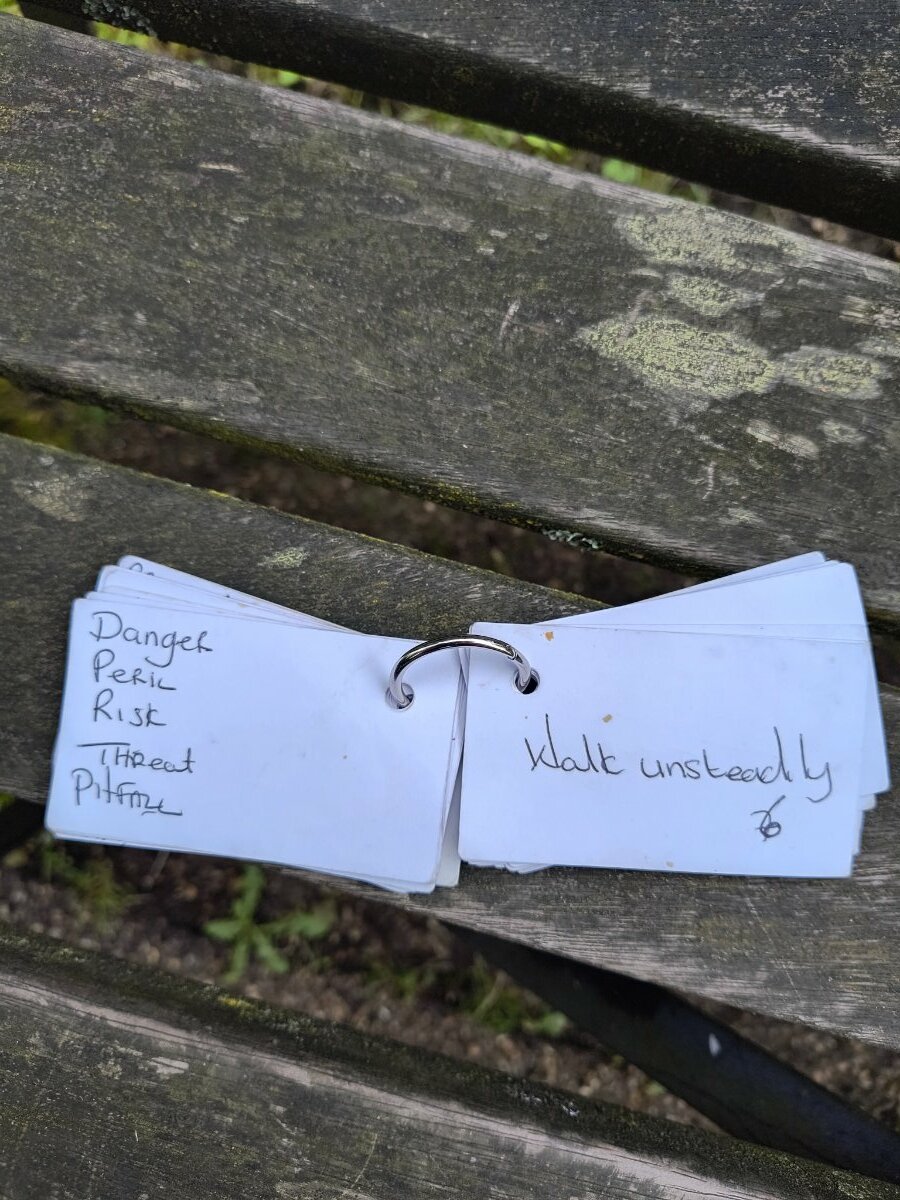 Danger
Peril
Risk
Threat
Pitfall
Walk unsteadily
6